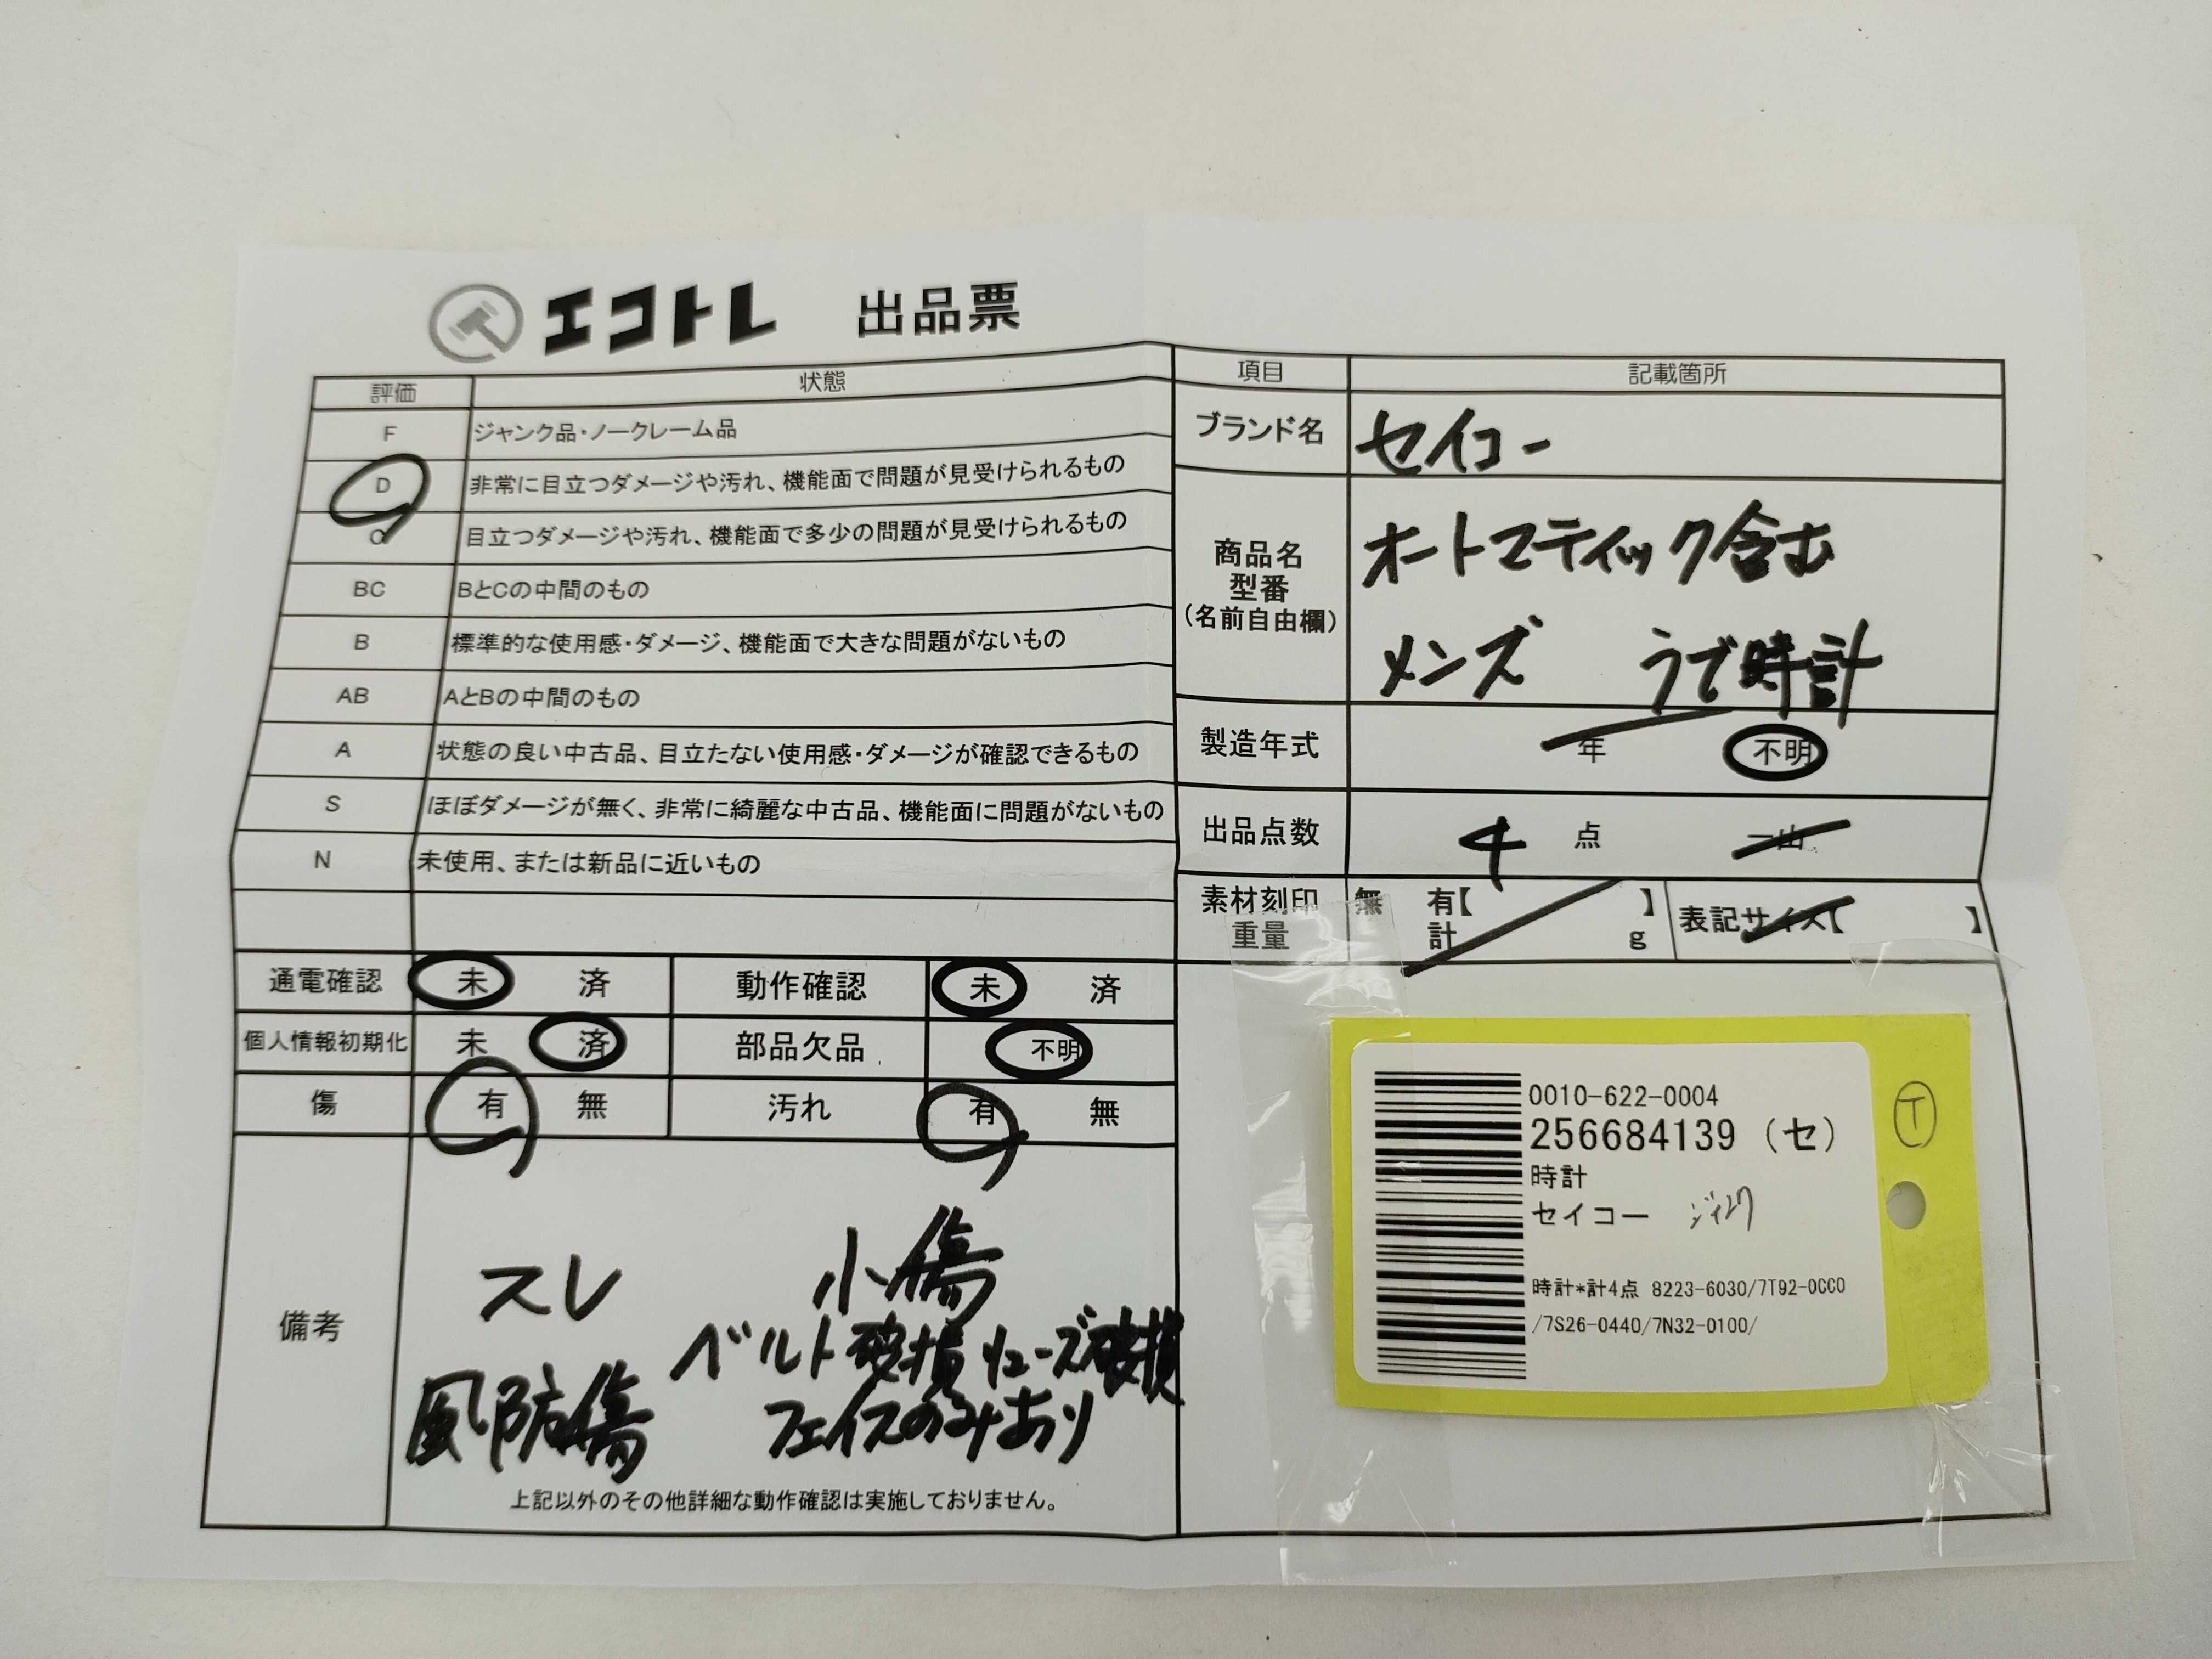 エコトレ 出品票
評価 状態
F ジャンク品・ノークレーム品
D 非常に目立つダメージや汚れ、機能面で問題が見受けられるもの
C 目立つダメージや汚れ、機能面で多少の問題が見受けられるもの
BC BとCの中間のもの
B 標準的な使用感・ダメージ、機能面で大きな問題がないもの
AB AとBの中間のもの
A 状態の良い中古品、目立たない使用感・ダメージが確認できるもの
S ほぼダメージが無く、非常に綺麗な中古品、機能面に問題がないもの
N 未使用、または新品に近いもの
通電確認 未 済 動作確認 未 済
個人情報初期化 未 済 部品欠品 不明
傷 有 無 汚れ 有 無
備考
スレ 小傷
ベルト破損 リューズ破損
風防傷 フェイスのみあり
上記以外のその他詳細な動作確認は実施しておりません。
項目 記載箇所
ブランド名 セイコー
商品名
型番
(名前自由欄)
オートマティック含む
メンズ うで時計
製造年式 年 不明
出品点数 4 点 一山
素材刻印 無 有【 】 表記サイズ【 】
重量 計 g
0010-622-0004
256684139 (セ)
時計
セイコー
時計*計4点 8223-6030/7T92-0CC0
/7S26-0440/7N32-0100/
T